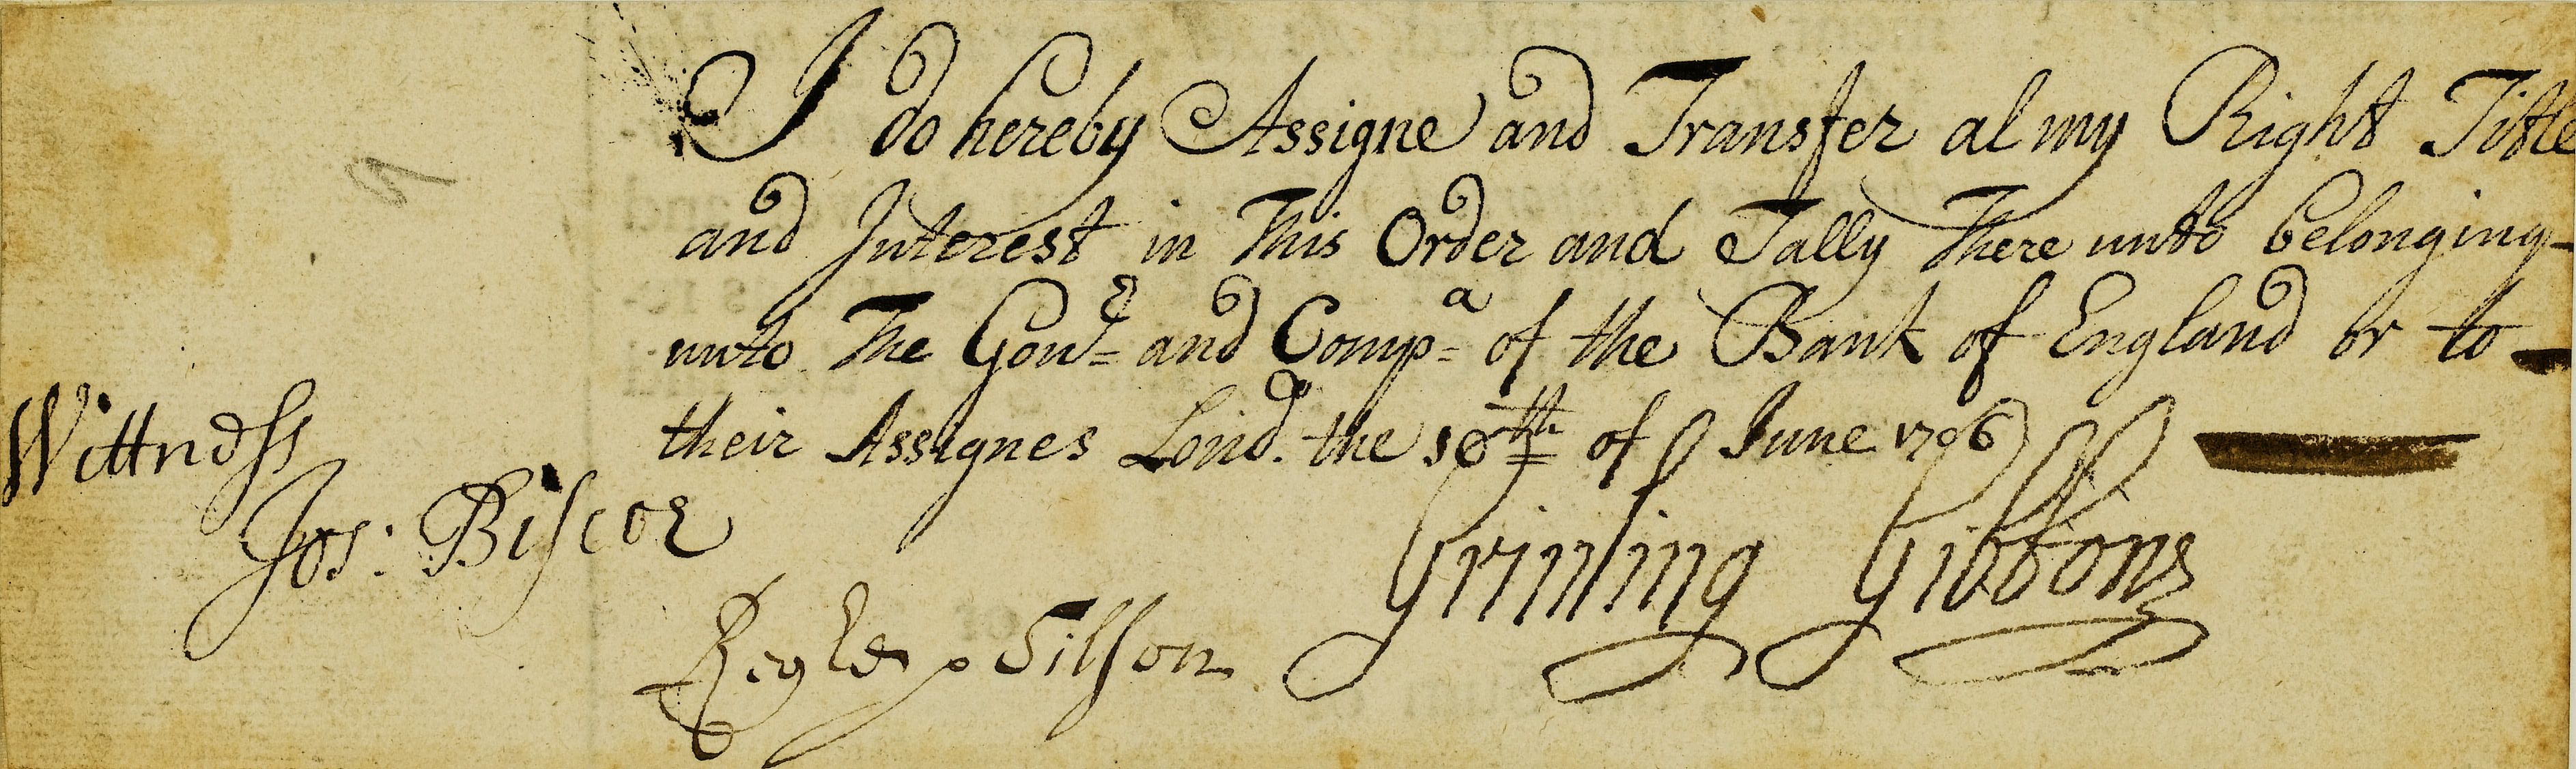 I do hereby Assigne and Transfer al my Right Title
and Interest in This Order and Tally There unto belonging
unto The Gouᵉ and Compᵃ of the Bank of England or to
their Assignes Lond. the 10th of June 1706
Wittness
Jos: Biscoe
Grinling Gibbons
Tilson